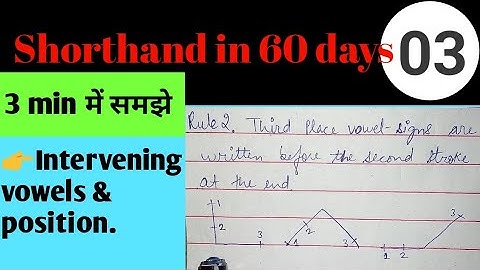 Shorthand in 60 days
03
3 min में समझे
👉 Intervening
vowels &
position.
Rule 2. Third Place vowel-signs are
written before the second stroke
at the end
1
2
3
1
2
3
1 2
3